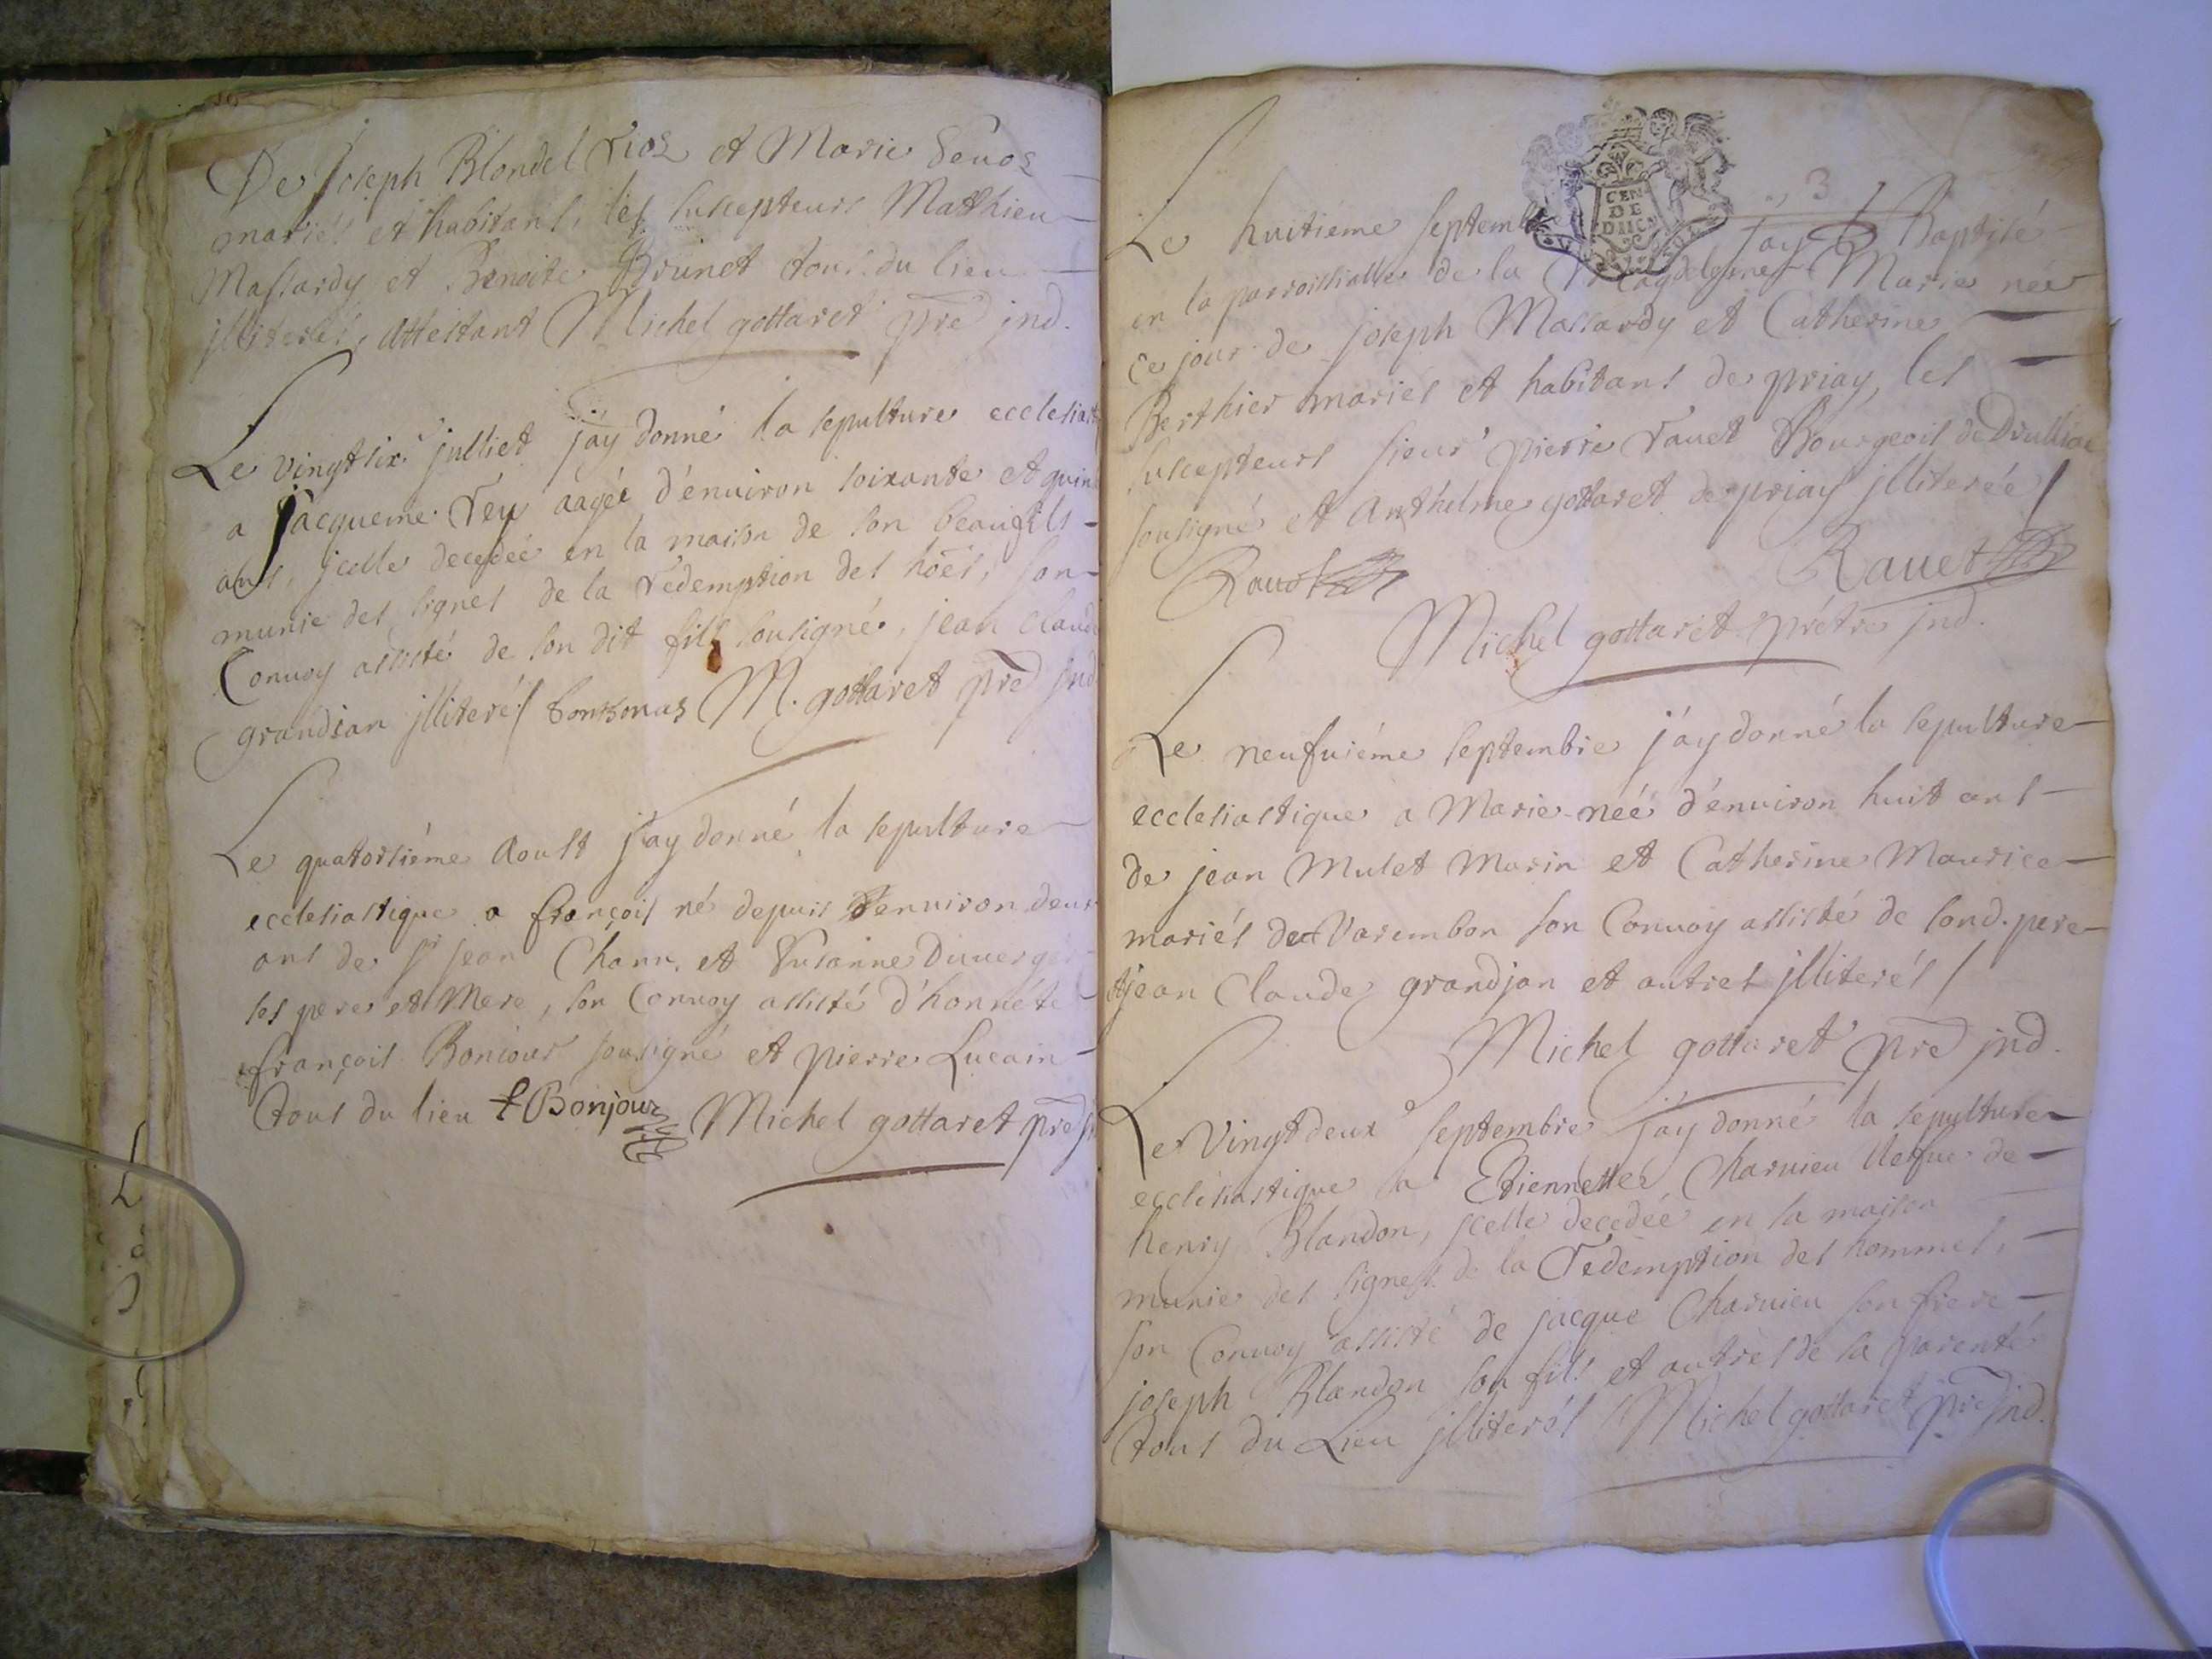 De Joseph Blondel et Marie
mariés et habitants, les suscepteurs Mathieu
Massardy et Benoite Brunet tous du lieu
jlliterés, attestant Michel gottaret pre jnd.
Le vingt six juilliet j'ay donné la sepulture ecclesiast
a Jacqueme aagée d'énuiron soixante et quin
ans, jcelle decedée en la maison de son beaufils
munie des signes de la redemption des hoes, son
Conuoy assisté de son dit fils sousigné, jean claude
grandjan jlliteré / M. gottaret pre jnd
Le quatorsiéme Aoust j'ay donné la sepulture
ecclesiastique a françois né depuis d'enuiron deux
ans de sr jean et Susanne Duuerger
ses pere et Mere, son Conuoy assisté d'honnéte
françois Bonjour sousigné et pierre Lucain
tous du lieu f Bonjour Michel gottaret pre
3
CEN
DE
DMC
Le huitiéme septemb j'ay Baptisé
en la parroissialle de la Magdeleine Marie née
ce jour de joseph Massardy et Catherine
Berthier mariés et habitans de priay, les
suscepteurs sieur pierre rauet Bourgeois de Druilliat
sousigné et Anthelme gottaret de priay jlliterée /
Rauet Rauet
Michel gottaret prétre jnd.
Le neufuiéme septembre j'ay donné la sepulture
ecclesiastique a Marie née d'énuiron huit ans
de jean Mulet Marin et Catherine Maurice
mariés de Varembon son Conuoy assisté de sond. pere
et jean Claude grandjan et autres jlliterés /
Michel gottaret pre jnd.
Le Vingt deux septembre j'ay donné la sepulture
ecclésiastique a Etiennette Charuieu Vefue de
henry Blandon, jcelle decedée en la maison
munie des signes de la redemption des hommes,
son Conuoy assisté de jacque Charuieu son frere
joseph Blandon son fils et autres de la parenté
tous du Lieu jlliterés / Michel gottaret pre jnd.